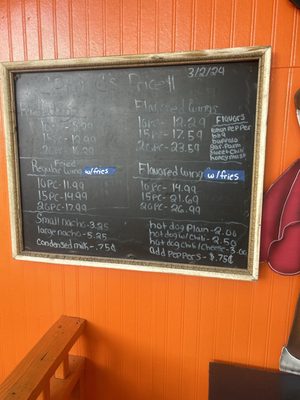 3/2/24
Flavored wings
10PC- 12.29
15PC- 17.59
20PC- 23.59
Flavors
Lemon Pepper
bbq
buffalo
Gar. Parm
Sweet Chili
honey must
Fried
Regular wing w/fries
10PC-11.99
15PC-14.99
20PC-17.99
Flavored wing w/fries
10PC-14.99
15PC-21.69
20PC-26.99
Small nacho-3.25
large nacho-5.25
condensed milk-.75¢
hot dog Plain-2.00
hot dog w/Chili-2.50
hot dog Chili/Cheese-3.00
add PePPers-$.75¢